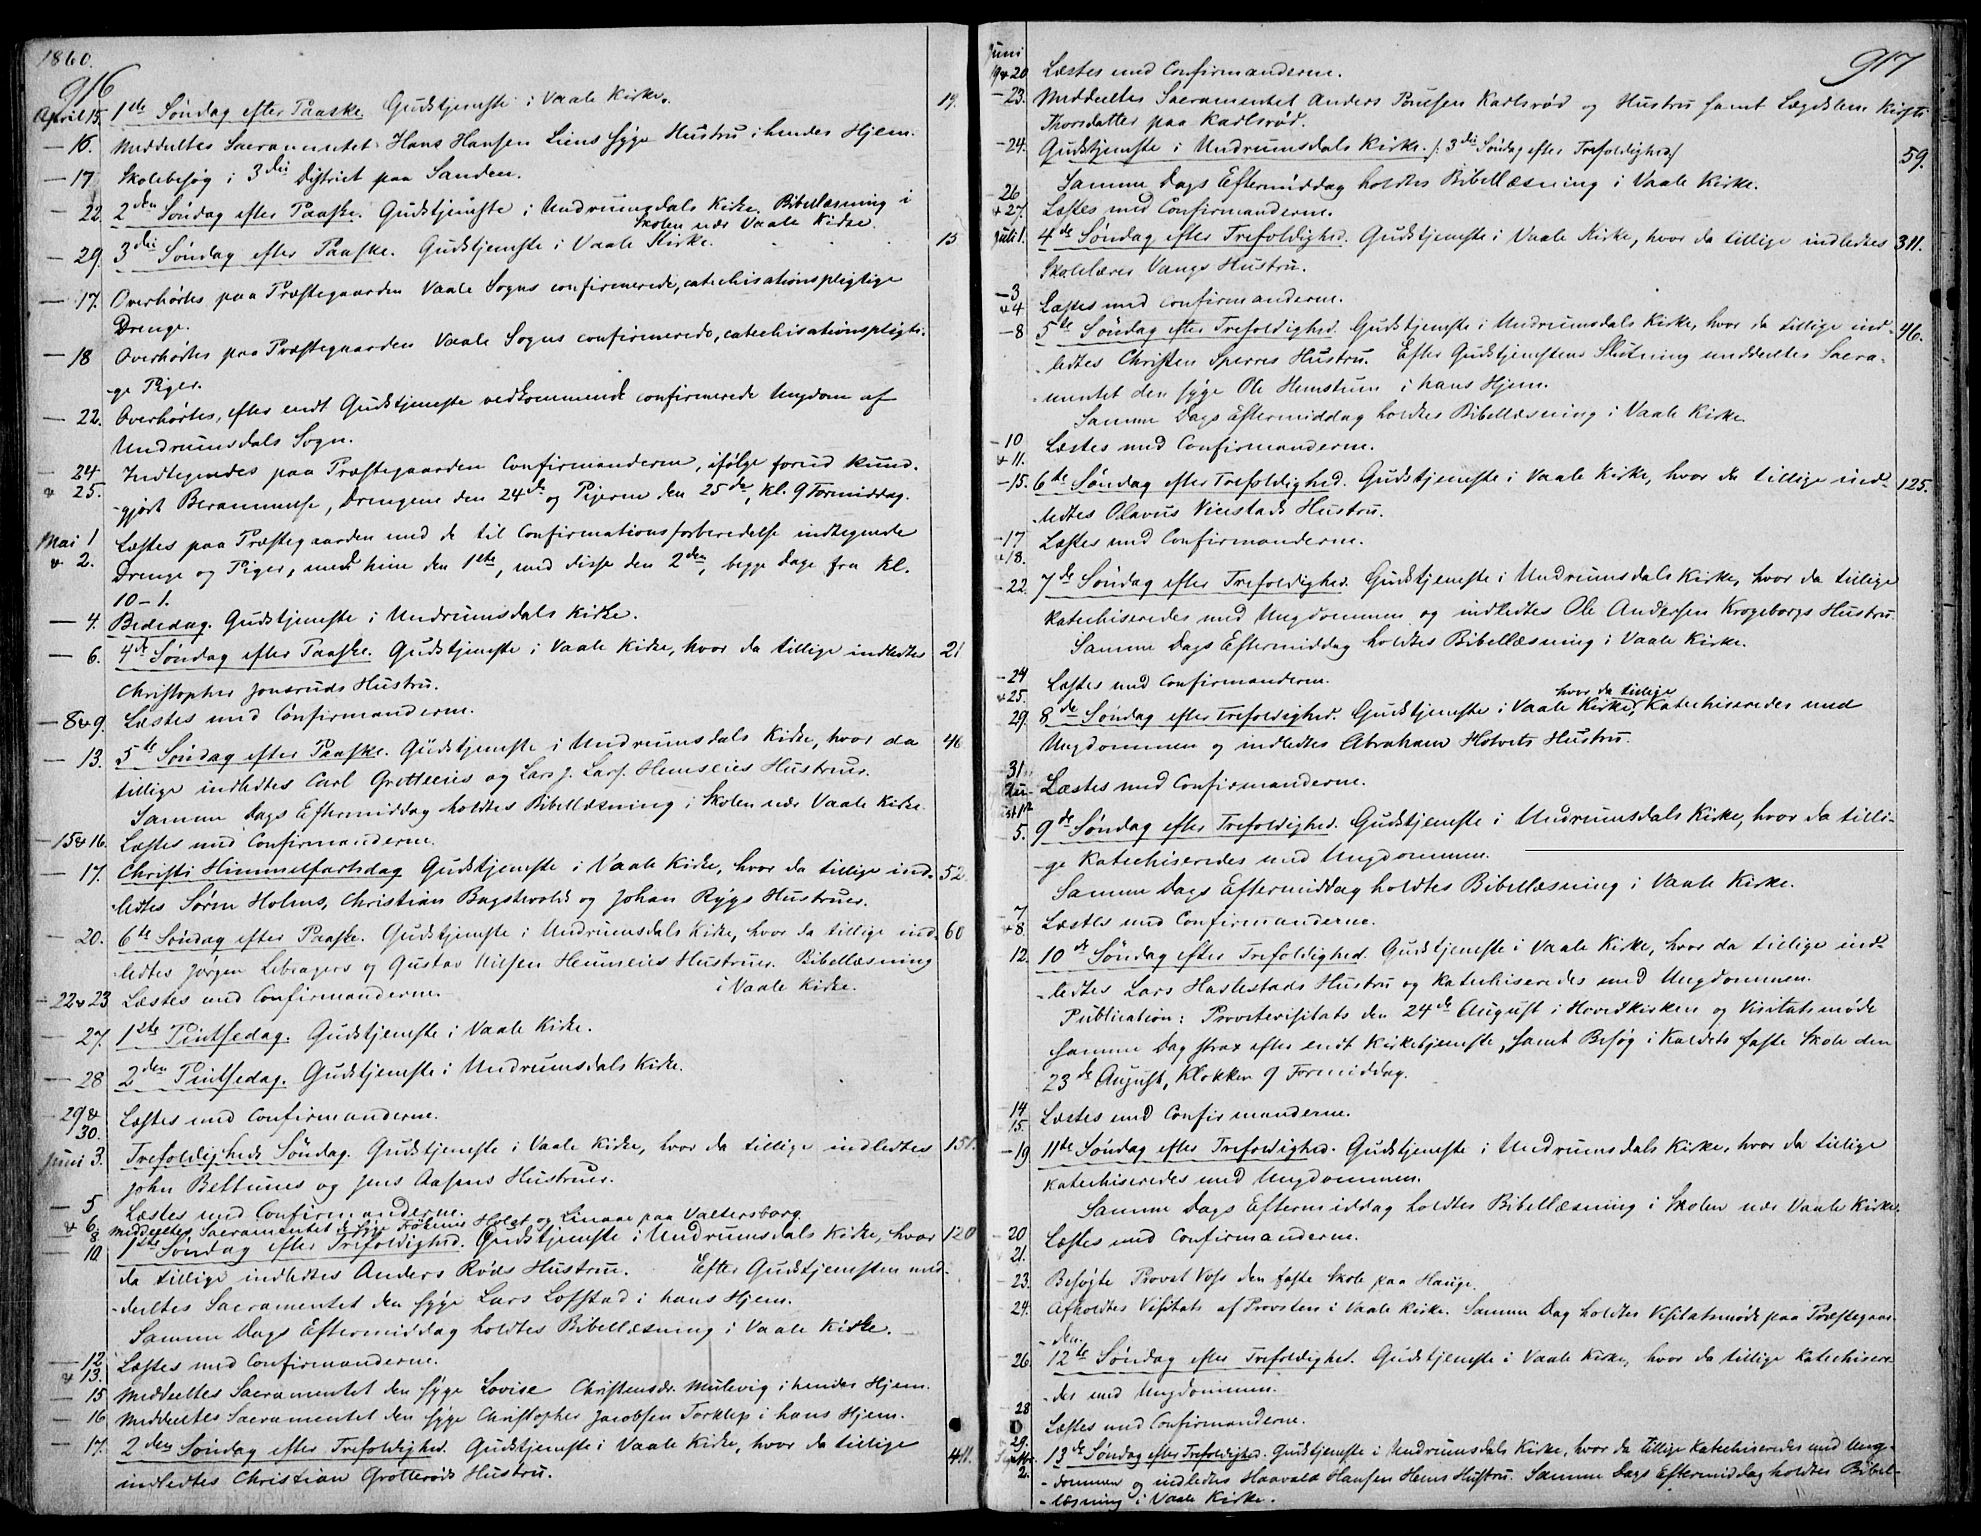 1860.
916
April 15. 1ste Søndag efter Paaske. Gudstjeneste i Vaale Kirke. 19.
— 16. Meddeeltes Sacramentet Hans Hansen Liens syge Hustru i hendes Hjem.
— 17 Skolebesøg i 3die District paa Sanden.
— 22. 2den Søndag efter Paaske. Gudstjeneste i Undrumsdals Kirke. Bibellæsning i
Skolen nær Vaale Kirke.
— 29. 3die Søndag efter Paaske. Gudstjeneste i Vaale Kirke. 15
— 17. Overhørtes paa Præstegaarden Vaale Sogns confirmerede, catechisationspligtige
Drenge.
— 18 Overhørtes paa Præstegaarden Vaale Sogns confirmerede, catechisationspligti-
-ge Piger.
— 22. Overhørtes, efter endt Gudstjeneste vedkommende confirmerede Ungdom af
Undrumsdals Sogn.
— 24 Indtegnedes paa Præstegaarden Confirmanderne, ifølge forud kund-
& 25. -gjort Berammelse, Drengene den 24de og Pigerne den 25de, Kl. 9 Formiddag.
Mai 1 Læstes paa Præstegaarden med de til Confirmationsforberedelse indtegnede
& 2. Drenge og Piger, med hine den 1ste, med disse den 2den, begge Dage fra Kl.
10-1.
— 4. Bededag. Gudstjeneste i Undrumsdals Kirke.
— 6. 4de Søndag efter Paaske. Gudstjeneste i Vaale Kirke, hvor da tillige indledtes 21
Christopher Jonsruds Hustru.
— 8&9. Læstes med Confirmanderne.
— 13. 5te Søndag efter Paaske. Gudstjeneste i Undrumsdals Kirke, hvor da 46
tillige indledtes Carl og Lars J. Lars. Hustruer.
Samme Dags Eftermiddag holdtes Bibellæsning i Skolen nær Vaale Kirke.
— 15&16. Læstes med Confirmanderne.
— 17. Christi Himmelfartsdag Gudstjeneste i Vaale Kirke, hvor da tillige ind- 52.
-ledtes Søren Holms, Christian Bagstevolds og Johan Rygs Hustruer.
— 20. 6te Søndag efter Paaske. Gudstjeneste i Undrumsdals Kirke, hvor da tillige ind- 60
-ledtes Jørgen og Gustav Nilsen Hustruer. Bibellæsning
i Vaale Kirke.
— 22&23 Læstes med Confirmanderne.
— 27. 1ste Pintsedag. Gudstjeneste i Vaale Kirke.
— 28 2den Pintsedag. Gudstjeneste i Undrumsdals Kirke.
— 29& Læstes med Confirmanderne.
30.
Juni 3. Trefoldigheds Søndag. Gudstjeneste i Vaale Kirke, hvor da tillige indledtes 151.
John Bettums og Jens Aasens Hustruer.
— 5 Læstes med Confirmanderne.
& 6.
8 Meddeeltes Sacramentet de syge Frøkener Holst og Linaae paa Valtersborg
— 10. 1ste Søndag efter Trefoldighed. Gudstjeneste i Undrumsdals Kirke, hvor 120
da tillige indledtes Anders Røds Hustru. Efter Gudstjenesten med-
-deeltes Sacramentet den syge Lars Lofstad i hans Hjem.
Samme Dags Eftermiddag holdtes Bibellæsning i Vaale Kirke.
— 12 Læstes med Confirmanderne.
& 13.
— 15 Meddeeltes Sacramentet den syge Lovise Christensdr. Mulevig i hendes Hjem.
— 16. Meddeeltes Sacramentet den syge Christopher Jacobsen Torklep i hans Hjem.
— 17. 2den Søndag efter Trefoldighed. Gudstjeneste i Vaale Kirke, hvor da tillige 411.
indledtes Christian Grotterøds Hustru.
917
Juni
19&20 Læstes med Confirmanderne.
— 23. Meddeeltes Sacramentet Anders Poulsen Karlsrød og Hustru samt Lægdslem Kirsti
Thorsdatter paa Karlsrød.
— 24. Gudstjeneste i Undrumsdals Kirke. /: 3die Søndag efter Trefoldighed :/ 59.
Samme Dags Eftermiddag holdtes Bibellæsning i Vaale Kirke.
— 26
& 27. Læstes med Confirmanderne.
Juli 1. 4de Søndag efter Trefoldighed. Gudstjeneste i Vaale Kirke, hvor da tillige indledtes 311.
Skolelærer Vangs Hustru.
— 3
& 4 Læstes med Confirmanderne.
— 8 5te Søndag efter Trefoldighed. Gudstjeneste i Undrumsdals Kirke, hvor da tillige ind- 46.
-ledtes Christen Sperres Hustru. Efter Gudstjenestens Slutning meddeeltes Sacra-
-mentet den syge Ole Hemstum i hans Hjem.
Samme Dags Eftermiddag holdtes Bibellæsning i Vaale Kirke
— 10 Læstes med Confirmanderne.
& 11.
— 15. 6te Søndag efter Trefoldighed. Gudstjeneste i Vaale Kirke, hvor da tillige ind- 125.
-ledtes Olavus Vieistads Hustru.
— 17 Læstes med Confirmanderne.
& 18.
— 22. 7de Søndag efter Trefoldighed. Gudstjeneste i Undrumsdals Kirke, hvor da tillige
Katechiseredes med Ungdommen og indledtes Ole Andersen Krogeborgs Hustru.
Samme Dags Eftermiddag holdtes Bibellæsning i Vaale Kirke.
— 24 Læstes med Confirmanderne.
& 25.
hvor da tillige
29. 8de Søndag efter Trefoldighed. Gudstjeneste i Vaale Kirke, Katechiseredes med
Ungdommen og indledtes Abraham Hotvets Hustru.
— 31.
Au- Læstes med Confirmanderne.
gust 1ste
5. 9de Søndag efter Trefoldighed. Gudstjeneste i Undrumsdals Kirke, hvor da tilli-
-ge Katechiseredes med Ungdommen.
Samme Dags Eftermiddag holdtes Bibellæsning i Vaale Kirke.
— 7
& 8 Læstes med Confirmanderne.
12. 10de Søndag efter Trefoldighed. Gudstjeneste i Vaale Kirke, hvor da tillige ind-
-ledtes Lars Haslestads Hustru og Katechiseredes med Ungdommen.
Publication: Provstevisitats den 24de August i Hovedkirken og Visitatsmøde
samme Dag strax efter endt Kirketjeneste, samt Besøg i Kaldets faste Skole den
23de August, Klokken 9 Formiddag.
— 14 Læstes med Confirmanderne.
15.
— 19 11te Søndag efter Trefoldighed. Gudstjeneste i Undrumsdals Kirke, hvor da tillige
Katechiseredes med Ungdommen.
Samme Dags Eftermiddag holdtes Bibellæsning i Skolen nær Vaale Kirke.
— 20 Læstes med Confirmanderne.
21.
— 23. Besøgte Provst Voss den faste Skole paa Hauge.
24. Afholdtes Visitats af Provsten i Vaale Kirke. Samme Dag holdtes Visitatsmøde paa Præstegaar-
-den.
— 26. 12te Søndag efter Trefoldighed. Gudstjeneste i Vaale Kirke, hvor da tillige Katechisere-
-des med Ungdommen.
— 28
29. Læstes med Confirmanderne.
Septbr.
2. 13de Søndag efter Trefoldighed. Gudstjeneste i Undrumsdals Kirke, hvor da tillige Katechiseredes med Ung-
-dommen og indledtes Haavald Hansen Hems Hustru. Samme Dags Eftermiddag holdtes Bibel-
-læsning i Vaale Kirke.